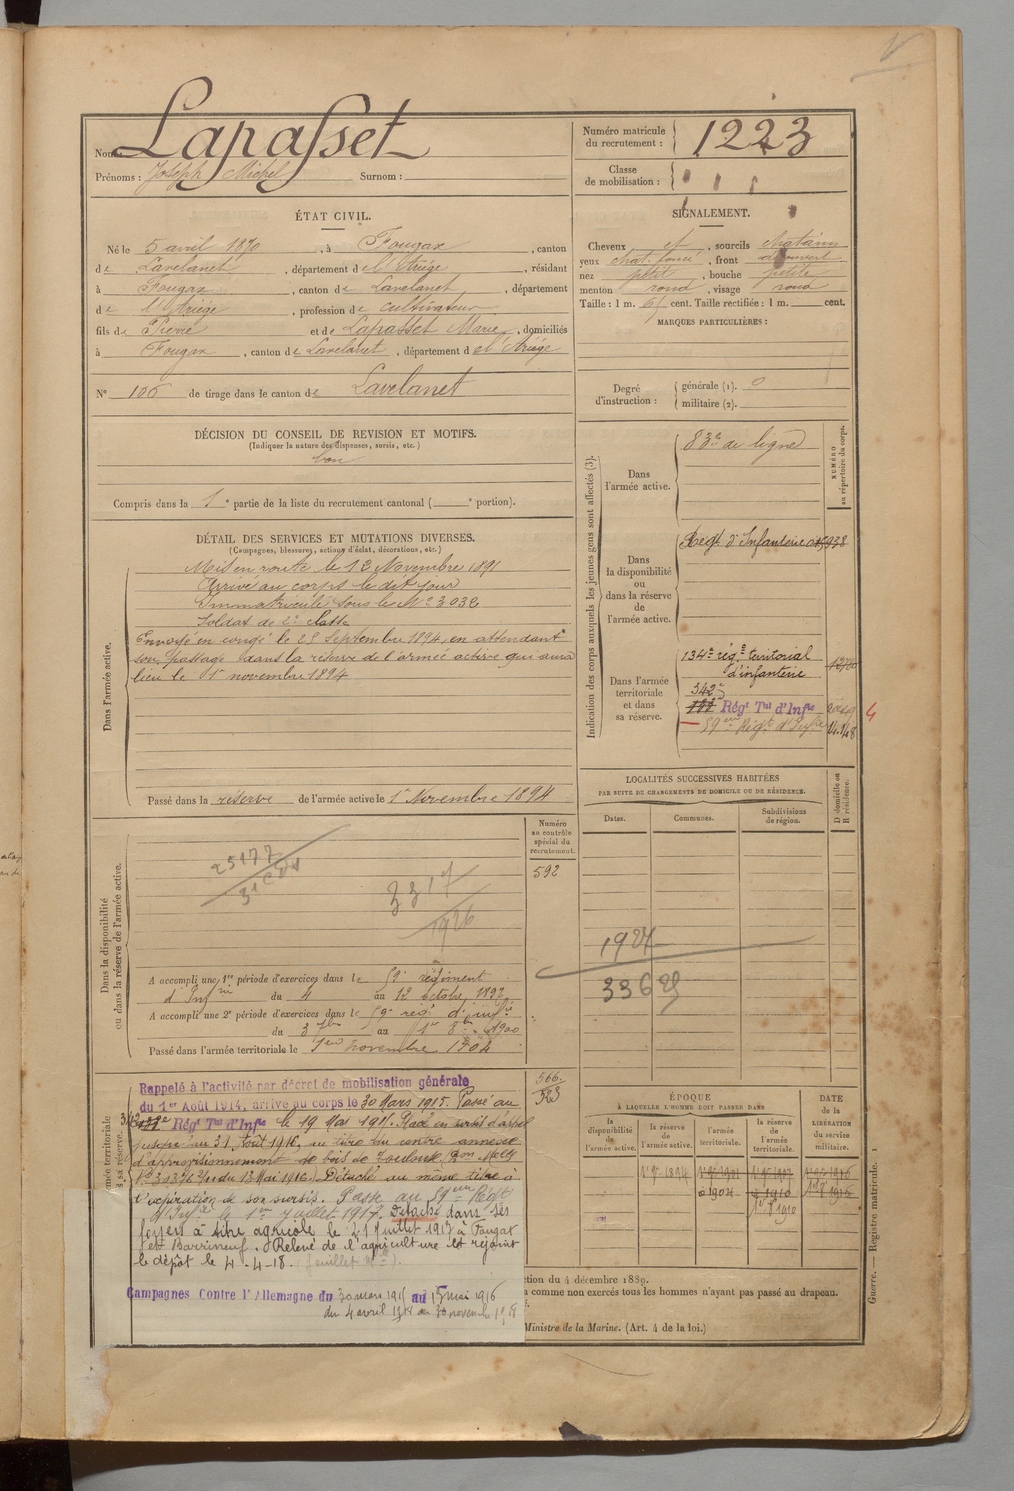 Nom : Lapasset
Prénoms : Joseph Michel Surnom :
Numéro matricule du recrutement : 1223
Classe de mobilisation :
ÉTAT CIVIL.
Né le 5 avril 1870, à Fougax, canton
de Lavelanet, département de l'Ariége, résidant
à Fougax, canton de Lavelanet, département
de l'Ariége, profession de cultivateur
fils de Pierre et de Lapasset Marie, domiciliés
à Fougax, canton de Lavelanet, département de l'Ariége
N° 106 de tirage dans le canton de Lavelanet
SIGNALEMENT.
Cheveux et, sourcils chatains
yeux chat. foncé, front découvert
nez petit, bouche petite
menton rond, visage rond
Taille : 1 m. 61 cent. Taille rectifiée : 1 m. cent.
MARQUES PARTICULIÈRES :
Degré d'instruction :
générale (1). 0
militaire (2).
DÉCISION DU CONSEIL DE REVISION ET MOTIFS.
(Indiquer la nature des dispenses, sursis, etc.)
bon
Compris dans la 1e partie de la liste du recrutement cantonal ( e portion).
DÉTAIL DES SERVICES ET MUTATIONS DIVERSES.
(Campagnes, blessures, actions d'éclat, décorations, etc.)
Dans l'armée active.
Mis en route le 12 Novembre 1891
Arrivé au corps le dit jour
Immatriculé sous le N° 3032
Soldat de 2e classe
Envoyé en congé le 28 Septembre 1894, en attendant
son passage dans la réserve de l'armée active qui aura
lieu le 1r novembre 1894
Passé dans la réserve de l'armée active le 1r Novembre 1894
Indication des corps auxquels les jeunes gens sont affectés (3).
NUMÉRO au répertoire du corps.
Dans l'armée active.
83e de ligne
Dans la disponibilité ou dans la réserve de l'armée active.
Regt d'Infanterie
Dans l'armée territoriale et dans sa réserve.
134e régt territorial
d'infanterie
342e
Régt Tal d'Infie
59eme Régt d'Infie
4
LOCALITÉS SUCCESSIVES HABITÉES
PAR SUITE DE CHANGEMENTS DE DOMICILE OU DE RÉSIDENCE.
D domicile ou R résidence.
Dates. Communes. Subdivisions de région.
1927
33629
Dans la disponibilité ou dans la réserve de l'armée active.
Numéro au contrôle spécial du recrutement.
592
25177
3317
1926
A accompli une 1re période d'exercices dans le 59e régiment
d'Infrie du 4 au 13 Octobre 1897
A accompli une 2e période d'exercices dans le 59e régt d'infie
du 3 7bre au 1900
Passé dans l'armée territoriale le 1er novembre 1904
566
523
Rappelé à l'activité par décret de mobilisation générale
du 1er Août 1914, arrivé au corps le 30 Mars 1915. Passé au
Régt Tal d'Infie le 19 Mai 1916. Placé en sursis d'appel
jusqu'au 31 Août 1916, au titre du centre annexe
d'approvisionnement de bois de Toulouse.
du 13 Mai 1916. Détaché au même titre à
l'expiration de son sursis. Passe au 59eme Régt
d'Infie le 1er Juillet 1917. Détaché dans ses
foyers à titre agricole le 21 Juillet 1917 à Fougax
et Barrineuf. Relevé de l'agriculture et rejoint
le dépôt le 4-4-18.
Campagnes Contre l'Allemagne du 30 mars 1915 au 15 mai 1916
du 4 avril 1918 au 30 novembre 1918
ÉPOQUE
À LAQUELLE L'HOMME DOIT PASSER DANS
la disponibilité de l'armée active.
la réserve de l'armée active.
l'armée territoriale.
la réserve de l'armée territoriale.
DATE de la LIBÉRATION du service militaire.
1er 9bre 1894
1904
1910
ction du 4 décembre 1889.
a comme non exercés tous les hommes n'ayant pas passé au drapeau.
Ministre de la Marine. (Art. 4 de la loi.)
Guerre. — Registre matricule. 1